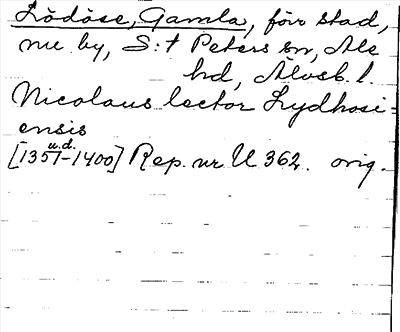 Lödöse, Gamla, förr stad,
nu by, S:t Peters sn, Ale
hd, Älvsb. l.
Nicolaus lector Lydhosi=
ensis
u.d.
[1351-1400] Rep. nr U 362. orig.